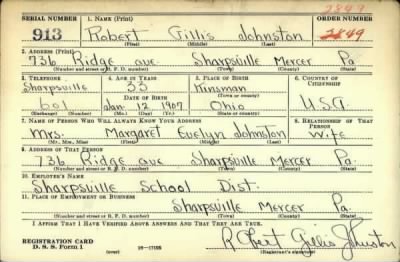 2849
SERIAL NUMBER 1. NAME (Print) ORDER NUMBER
913 Robert Gillis Johnston 2849
(First) (Middle) (Last)
2. ADDRESS (Print)
736 Ridge ave Sharpsville Mercer Pa
(Number and street or R. F. D. number) (Town) (County) (State)
3. TELEPHONE 4. AGE IN YEARS 5. PLACE OF BIRTH 6. COUNTRY OF CITIZENSHIP
Sharpsville 33 Kinsman
DATE OF BIRTH (Town or county)
601 Jan. 12 1907 Ohio USA
(Exchange) (Number) (Mo.) (Day) (Yr.) (State or country)
7. NAME OF PERSON WHO WILL ALWAYS KNOW YOUR ADDRESS 8. RELATIONSHIP OF THAT PERSON
Mrs. Margaret Evelyn Johnston Wife
(Mr., Mrs., Miss) (First) (Middle) (Last)
9. ADDRESS OF THAT PERSON
736 Ridge ave Sharpsville Mercer Pa.
(Number and street or R. F. D. number) (Town) (County) (State)
10. EMPLOYER'S NAME
Sharpsville School Dist.
11. PLACE OF EMPLOYMENT OR BUSINESS
Sharpsville Mercer Pa.
(Number and street or R. F. D. number) (Town) (County) (State)
I AFFIRM THAT I HAVE VERIFIED ABOVE ANSWERS AND THAT THEY ARE TRUE.
REGISTRATION CARD
D. S. S. Form 1 Robert Gillis Johnston
(Registrant's signature)